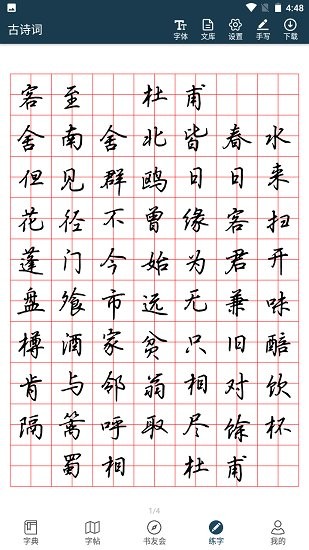 4:48
古诗词
字体 文库 设置 手写 下载
客至 杜甫
舍南舍北皆春水
但见群鸥日日来
花径不曾缘客扫
蓬门今始为君开
盘飧市远无兼味
樽酒家贫只旧醅
肯与邻翁相对饮
隔篱呼取尽馀杯
蜀相 杜甫
1/4
字典 字帖 书友会 练字 我的